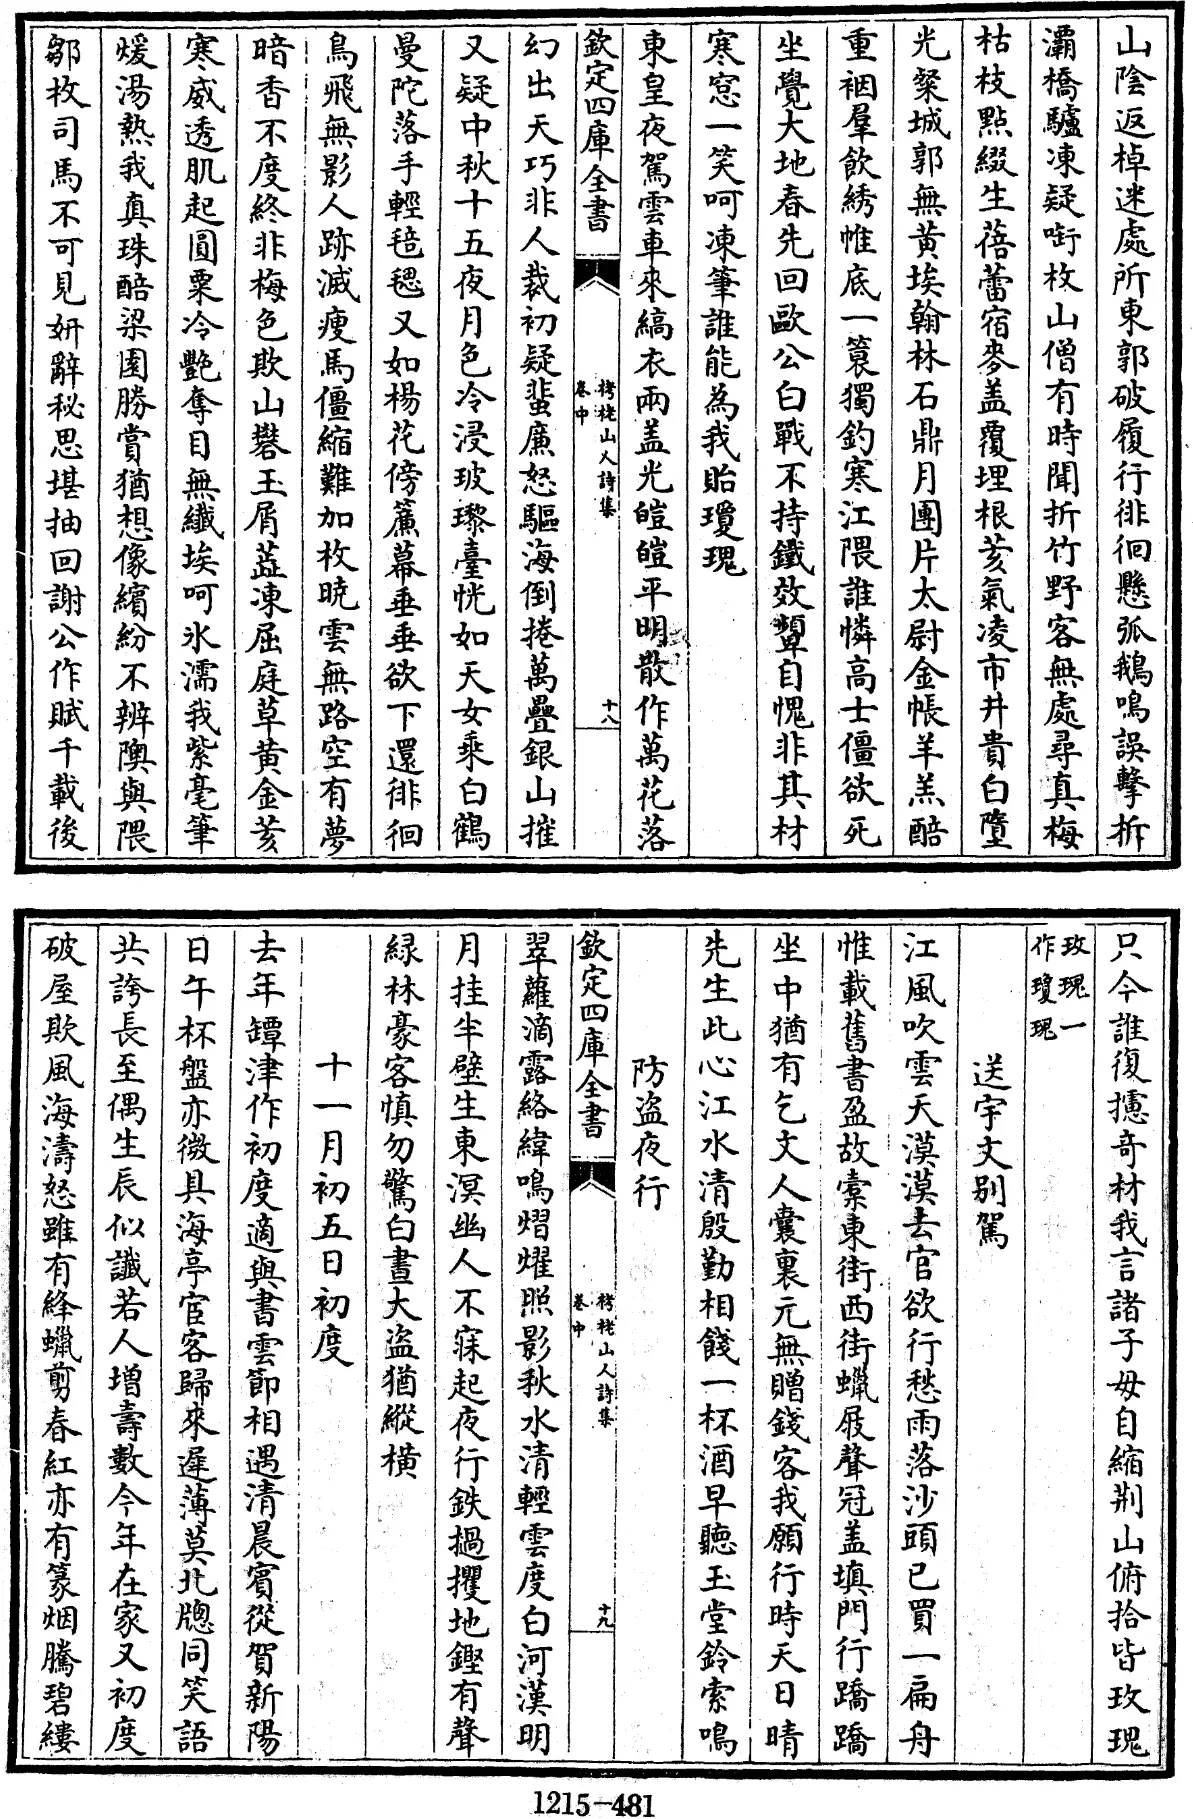 山陰返棹迷處所東郭破履行徘徊懸弧鵝鳴誤擊柝
灞橋驢凍疑啣枚山僧有時聞折竹野客無處尋真梅
枯枝點綴生蓓蕾宿麥盖覆埋根荄氣凌市井貴白墮
光粲城郭無黄埃翰林石鼎月團片太尉金帳羊羔醅
重裀羣飲綉帷底一簑獨釣寒江隈誰憐高士僵欲死
坐覺大地春先回歐公白戰不持鐵效顰自愧非其材
寒窓一笑呵凍筆誰能為我貽瓊瑰
東皇夜駕雲車來縞衣兩盖光皚皚平明散作萬花落
欽定四庫全書
栲栳山人詩集
卷中
十八
幻出天巧非人裁初疑蜚廉怒驅海倒捲萬疊銀山摧
又疑中秋十五夜月色冷浸玻瓈臺恍如天女乘白鶴
曼陀落手輕毰毸又如楊花傍簾幕垂垂欲下還徘徊
鳥飛無影人跡滅瘦馬僵縮難加枚曉雲無路空有夢
暗香不度終非梅色欺山礬玉屑葅凍屈庭草黄金荄
寒威透肌起圓粟冷艷奪目無纖埃呵氷濡我紫毫筆
煖湯熱我真珠醅梁園勝賞猶想像繽紛不辨隩與隈
鄒枚司馬不可見妍辭秘思堪抽回謝公作賦千載後
只今誰復攄奇材我言諸子毋自縮荆山俯拾皆玫瑰
玫瑰一
作瓊瑰
送宇文别駕
江風吹雲天漠漠去官欲行愁雨落沙頭已買一扁舟
惟載舊書盈故橐東街西街蠟屐聲冠盖填門行蹻蹻
坐中猶有乞文人囊裏元無贈錢客我願行時天日晴
先生此心江水清殷勤相餞一杯酒早聽玉堂鈴索鳴
防盗夜行
欽定四庫全書
栲栳山人詩集
卷中
十九
翠蘿滴露絡緯鳴熠燿照影秋水清輕雲度白河漢明
月挂半壁生東溟幽人不寐起夜行鉄撾攫地鏗有聲
緑林豪客慎勿驚白晝大盗猶縱横
十一月初五日初度
去年罈津作初度適與書雲節相遇清晨賓從賀新陽
日午杯盤亦微具海亭宦客歸來遲薄莫北牕同笑語
共誇長至偶生辰似讖若人增壽數今年在家又初度
破屋欺風海濤怒雖有絳蠟剪春紅亦有篆烟騰碧縷
1215-481